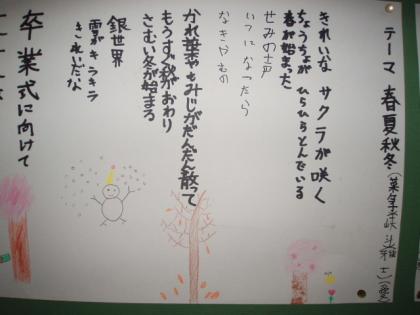 テーマ 春夏秋冬
きれいな サクラが咲く
ちょうちょが ひらひらとんでいる
春が始まった
せみの声
いつになったら
なきやむの
かれ葉やもみじがだんだん散って
もうすぐ秋がおわり
さむい冬が始まる
銀世界
雪がキラキラ
きれいだな
卒業式に向けて